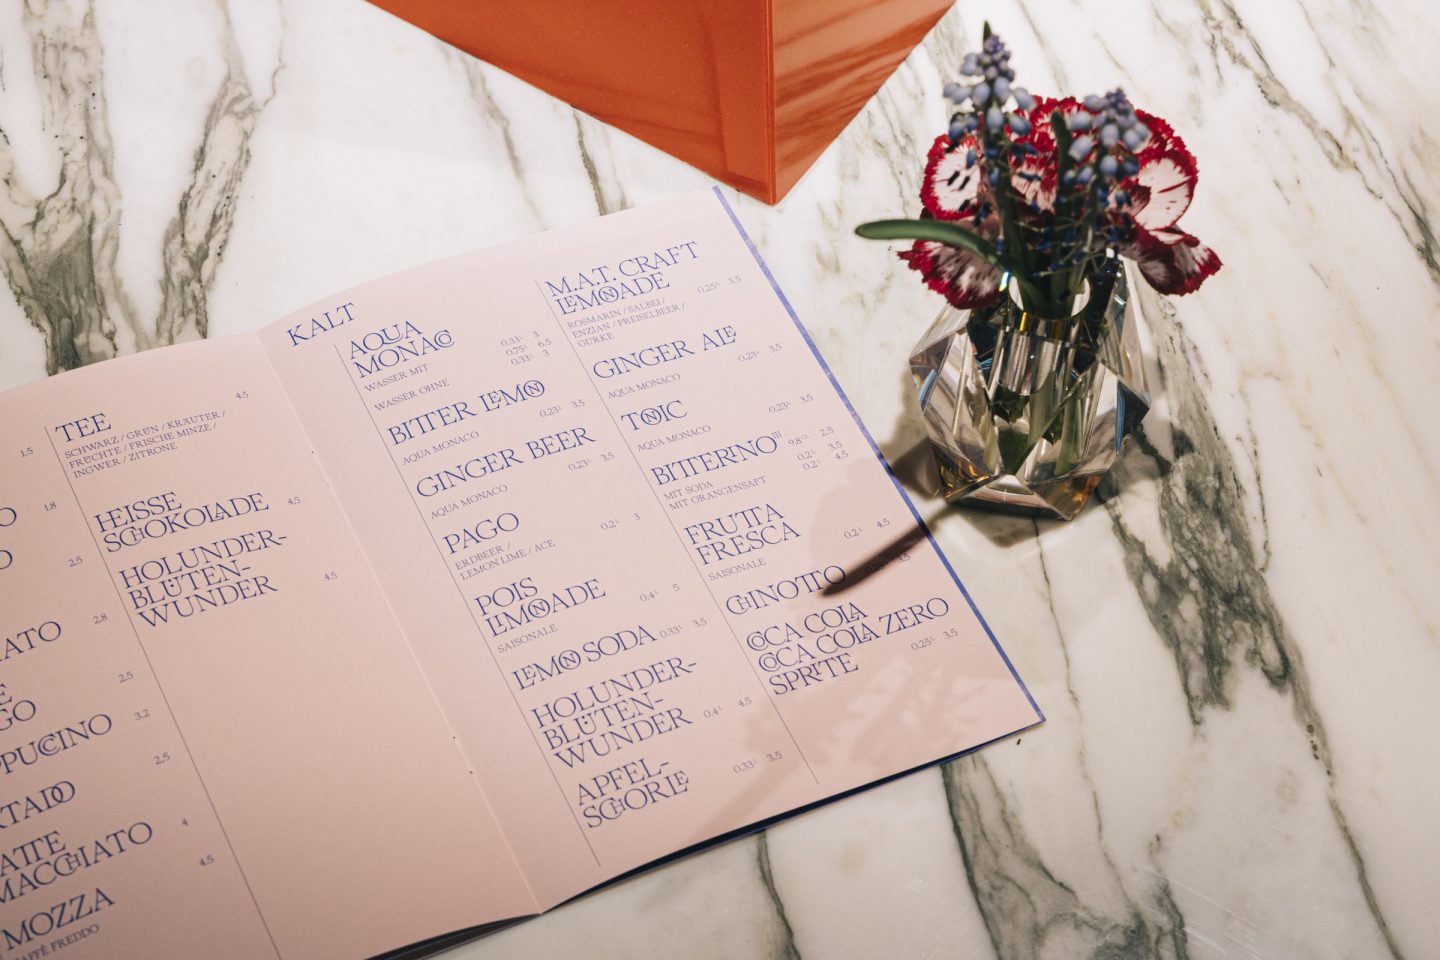 1.5
1.8
2.5
2.8
ATO
2.5
GO
3.2
PUCCINO
2.5
TADO
4
ATTE
MACCHIATO
4.5
MOZZA
CAFFÈ FREDDO
TEE 4.5
SCHWARZ / GRÜN / KRÄUTER /
FRÜCHTE / FRISCHE MINZE /
INGWER / ZITRONE
HEISSE
SCHOKOLADE 4.5
HOLUNDER-
BLÜTEN-
WUNDER 4.5
KALT
AQUA
MONACO
0.33 L 3
WASSER MIT 0.75 L 6.5
WASSER OHNE 0.33 L 3
BITTER LEMON
AQUA MONACO 0.23 L 3.5
GINGER BEER
AQUA MONACO 0.23 L 3.5
PAGO 0.2 L 3
ERDBEER /
LEMON LIME / ACE
POIS
LIMONADE 0.4 L 5
SAISONALE
LEMON SODA 0.33 L 3.5
HOLUNDER-
BLÜTEN-
WUNDER 0.4 L 4.5
APFEL-
SCHORLE 0.33 L 3.5
M.A.T. CRAFT
LEMONADE 0.25 L 3.5
ROSMARIN / SALBEI /
ENZIAN / PREISELBEER /
GURKE
GINGER ALE
AQUA MONACO 0.23 L 3.5
TONIC
AQUA MONACO 0.23 L 3.5
BITTERINO III 9.8 CL 2.5
MIT SODA 0.2 L 3.5
MIT ORANGENSAFT 0.2 L 4.5
FRUTTA
FRESCA 0.2 L 4.5
SAISONALE
CHINOTTO 3.5
COCA COLA
COCA COLA ZERO
SPRITE 0.25 L 3.5